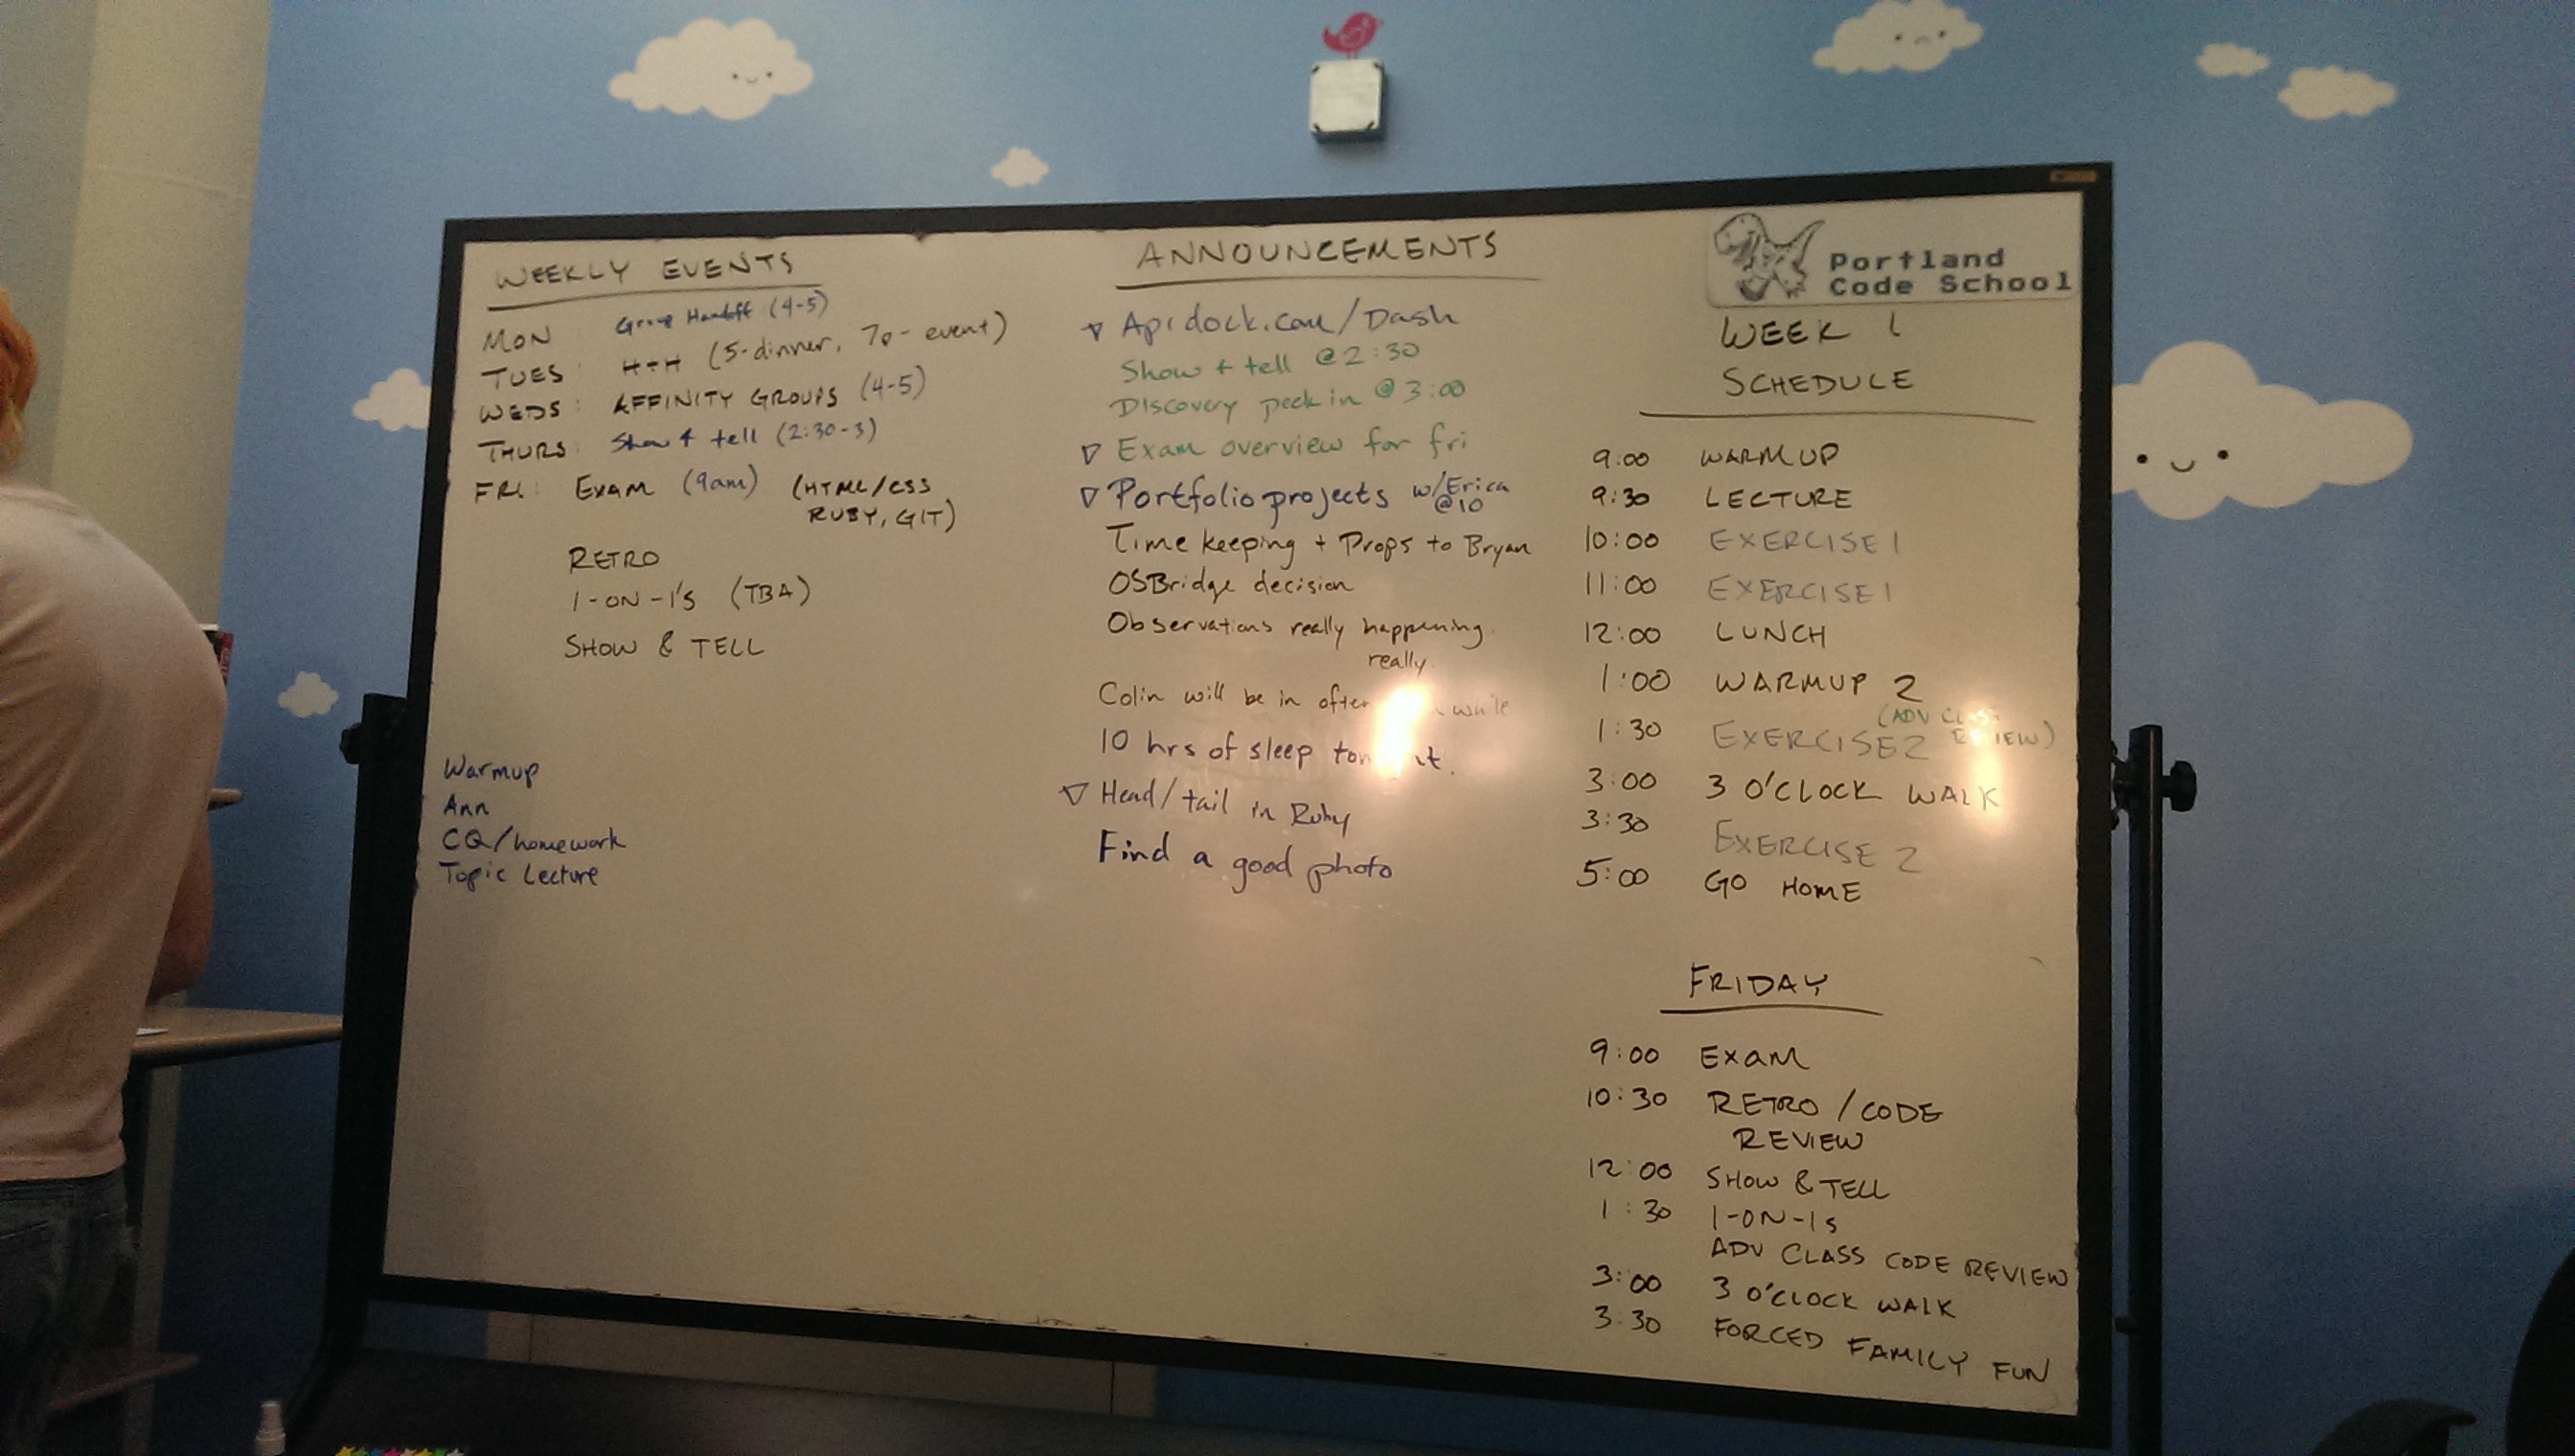 WEEKLY EVENTS
MON Group Handoff (4-5)
TUES: H+H (5-dinner, 7p- event)
WEDS: AFFINITY GROUPS (4-5)
THURS: Show & tell (2:30-3)
FRI: EXAM (9am) (HTML/CSS
RUBY, GIT)
RETRO
1-ON-1'S (TBA)
SHOW & TELL
Warmup
Ann
CQ/homework
Topic Lecture
ANNOUNCEMENTS
Apidock.com/Dash
Show + tell @ 2:30
Discovery peek in @ 3:00
Exam overview for fri
Portfolio projects w/Erica
@10
Time keeping + Props to Bryan
OSBridge decision
Observations really happening.
really.
Colin will be in often while
10 hrs of sleep
Head/tail in Ruby
Find a good photo
Portland
Code School
WEEK 1
SCHEDULE
9:00 WARMUP
9:30 LECTURE
10:00 EXERCISE 1
11:00 EXERCISE 1
12:00 LUNCH
1:00 WARMUP 2
1:30 EXERCISE 2 (ADV CLASS
REVIEW)
3:00 3 O'CLOCK WALK
3:30 EXERCISE 2
5:00 GO HOME
FRIDAY
9:00 EXAM
10:30 RETRO / CODE
REVIEW
12:00 SHOW & TELL
1:30 1-ON-1s
ADV CLASS CODE REVIEW
3:00 3 O'CLOCK WALK
3:30 FORCED FAMILY FUN